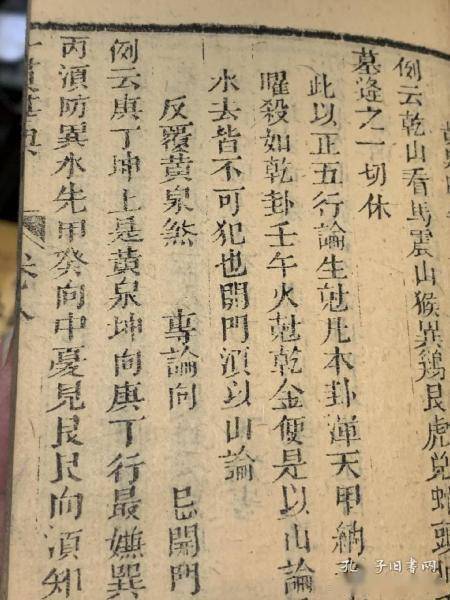 例云乾山看馬震山猴巽鷄艮虎兌蛇頭
墓逢之一切休
此以正五行論生尅凡本卦渾天甲納
曜殺如乾卦壬午火尅乾金便是以山論
水去皆不可犯也開門須以山論
反覆黄泉煞 專論向 忌開門
例云庚丁坤上是黄泉坤向庚丁行最嫌巽
丙須防巽水先甲癸向中憂見艮艮向須知
孔子旧書网